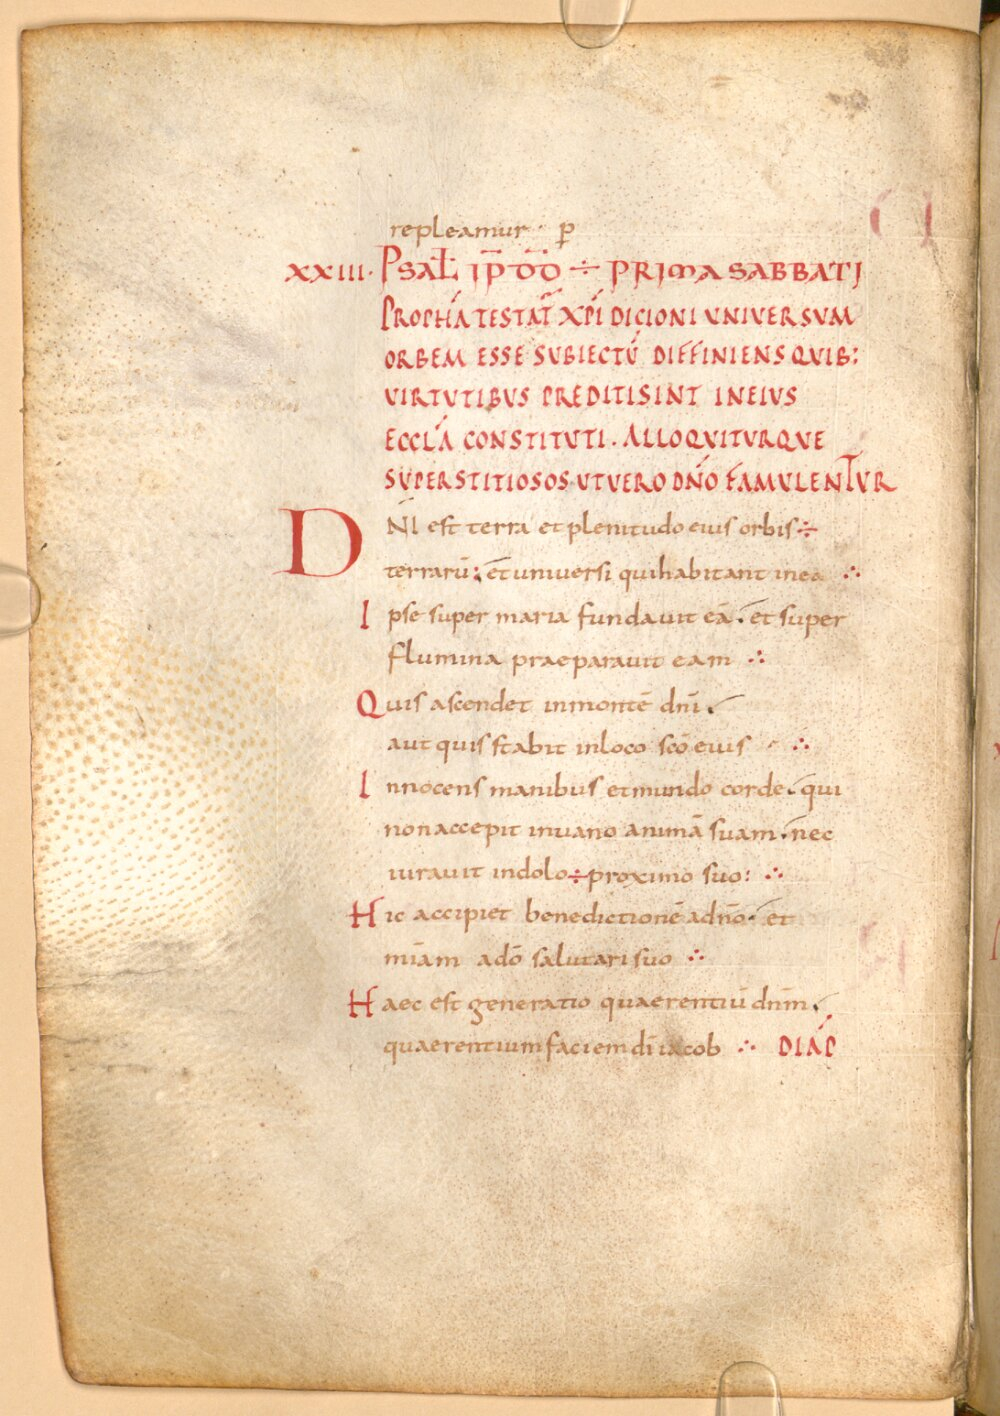 repleamur · p̄
XXIII · PSAL̄ IP̄ DD̄ ÷ PRIMA SABBATI
PROPHA TESTAT̄ XP̄I DICIONI UNIVERSVM
ORBEM ESSE SUBIECTŪ DIFFINIENS QUIB:
VIRTUTIBVS PREDITI SINT IN EIVS
ECCL̄A CONSTITUTI . ALLOQVITVRQVE
SUPERSTITIOSOS UT VERO DN̄O FAMULENTUR
DN̄I est terra et plenitudo eius orbis ÷
terrarū: et universi qui habitant in ea ∴
Ipse super maria fundavit eā. et super
flumina praeparavit eam ∴
Quis ascendet in monte dn̄i.
aut quis stabit in loco sc̄o eius ∴
Innocens manibus et mundo corde. qui
non accepit in vano animā suam. nec
iuravit in dolo ÷ proximo suo: ∴
Hic accipiet benedictionē a dn̄o. et
miam̄ a dō salutari suo ∴
Haec est generatio quaerentiū dnm̄.
quaerentium faciem dī iacob ∴ DIAP̄